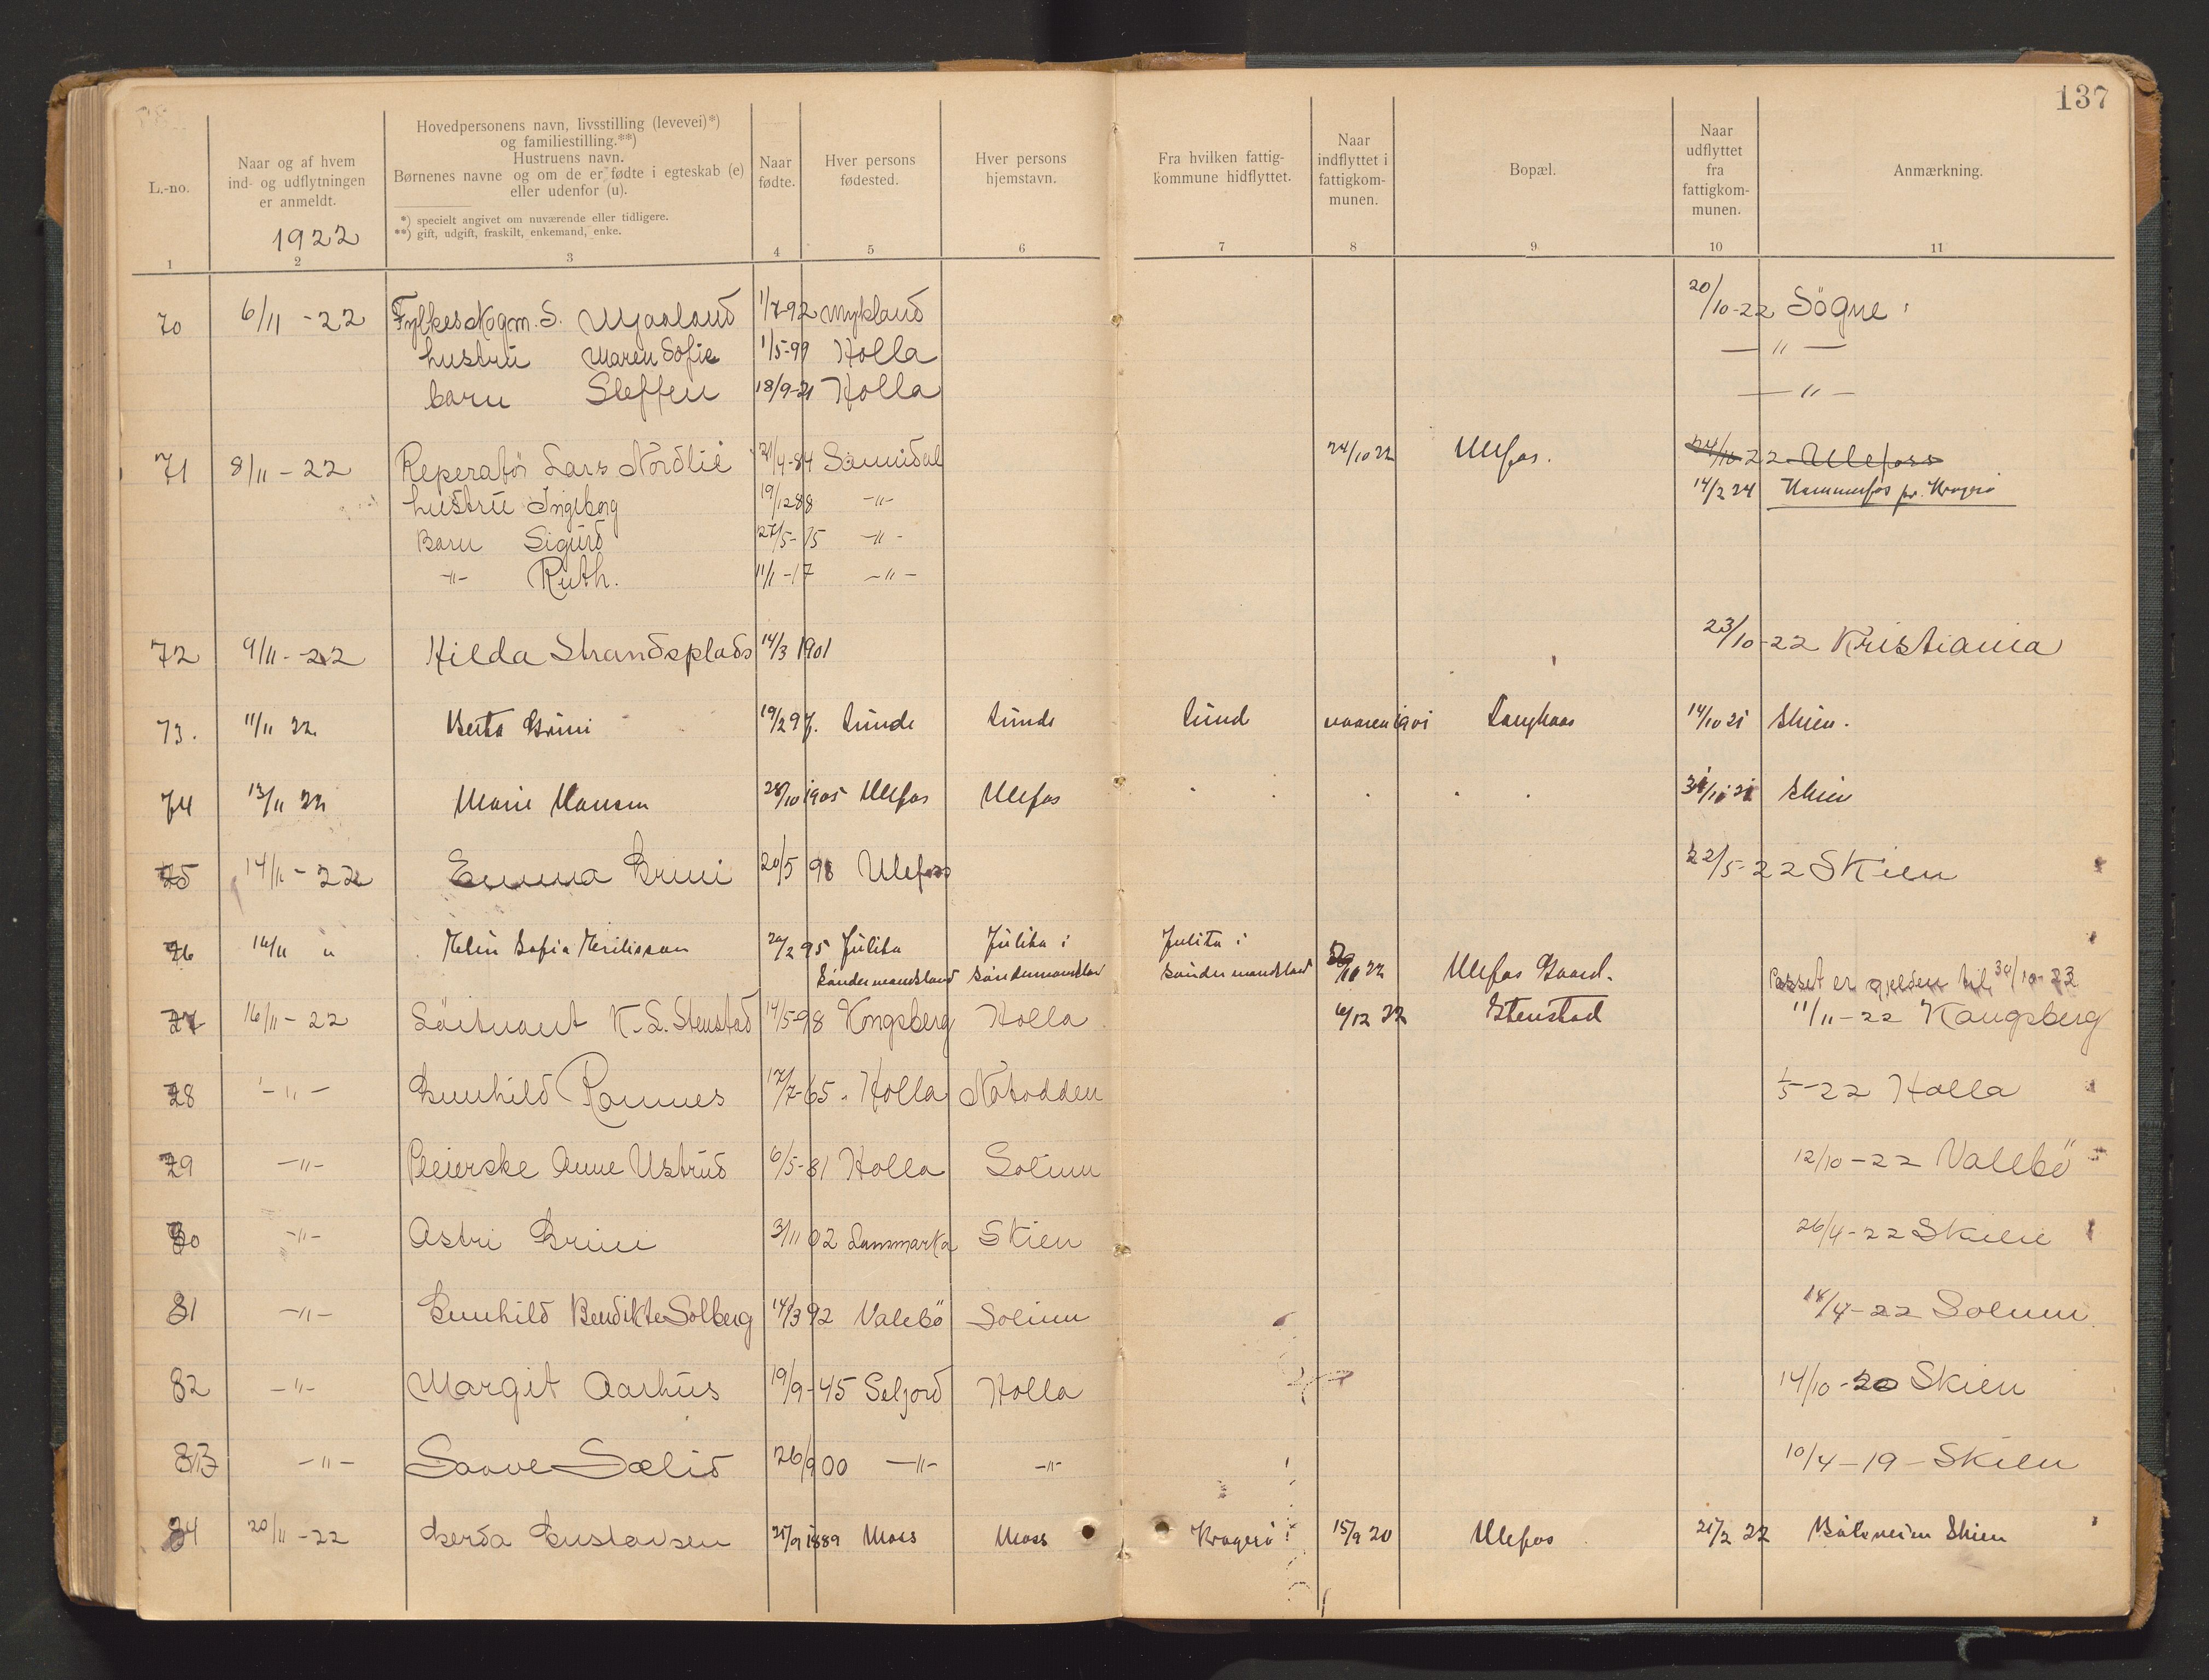 137
L.-no.
Naar og af hvem
ind- og udflytningen
er anmeldt.
1922
Hovedpersonens navn, livsstilling (levevei)*)
og familiestilling.**)
Hustruens navn.
Børnenes navne og om de er fødte i egteskab (e)
eller udenfor (u).
*) specielt angivet om nuværende eller tidligere.
**) gift, udgift, fraskilt, enkemand, enke.
Naar
fødte.
Hver persons
fødested.
Hver persons
hjemstavn.
Fra hvilken fattig-
kommune hidflyttet.
Naar
indflyttet i
fattigkom-
munen.
Bopæl.
Naar
udflyttet
fra
fattigkom-
munen.
Anmærkning.
1 2 3 4 5 6 7 8 9 10 11
70 6/11 - 22 S. Mjaaland 1/7-92 Mykland 20/10-22 Sögne
hustru Maren Sofie 1/5-99 Holla — " —
barn Steffen 18/9-21 Holla — " —
71 8/11 - 22 Reperatör Lars Nordlie 21/4-84 Sannidal 24/10 22 Ulefos. 24/10 22 Ulefoss
hustru Ingeborg 19/12 88 -"- 14/2 24 Kammerfos pr. Kragerö
Barn Sigurd 27/5-15 -"-
-"- Ruth. 11/1-17 -"-
72 9/11 - 22 Hilda Strandsplads 14/3 1901 23/10-22 Kristiania
73. 11/11 22 Berta Grini 19/2 97. Lunde Lunde Lunde vaaren 1901 14/10 21 Skien.
74 13/11 22 Marie Hansen 28/10 1905 Ulefos Ulefos Skien
75 14/11 - 22 Emma Grini 20/5 98 Ulefoss 22/5-22 Skien
76 14/11 " Sofia 95 Julita Julita i Julita i
Söndermandland Söndermandland Söndermandland 22 Ulefos Gaard. Passet er gjelden til 30/10-23
77 16/11 - 22 Löitnant K. S. Stenstad 14/5-98 Kongsberg Holla 6/12 22 Stenstad 11/11-22 Kongsberg
78 -"- Gunhild Romnes 17/7-65 Holla Notodden 1/5-22 Holla
79 -"- Anne Ustrud 6/5-81 Holla Solum 12/10-22 Valebö
80 -"- Astri Grini 3/11 02 Lannmarka Skien 26/4-22 Skien
81 -"- Gunhild Bendikte Solberg 14/3 92 Valebö Solum 18/4-22 Solum
82 -"- Margit Aarhus 19/9-45 Seljord Holla 14/10-20 Skien
83 -"- Saave Sælid 26/9 00 -"- -"- 10/4-19 - Skien
84 20/11 - 22 Gerda Gustavsen 25/9 1889 Moss Moss Kragerö 15/9 20 Ulefos 21/2 22 Skien